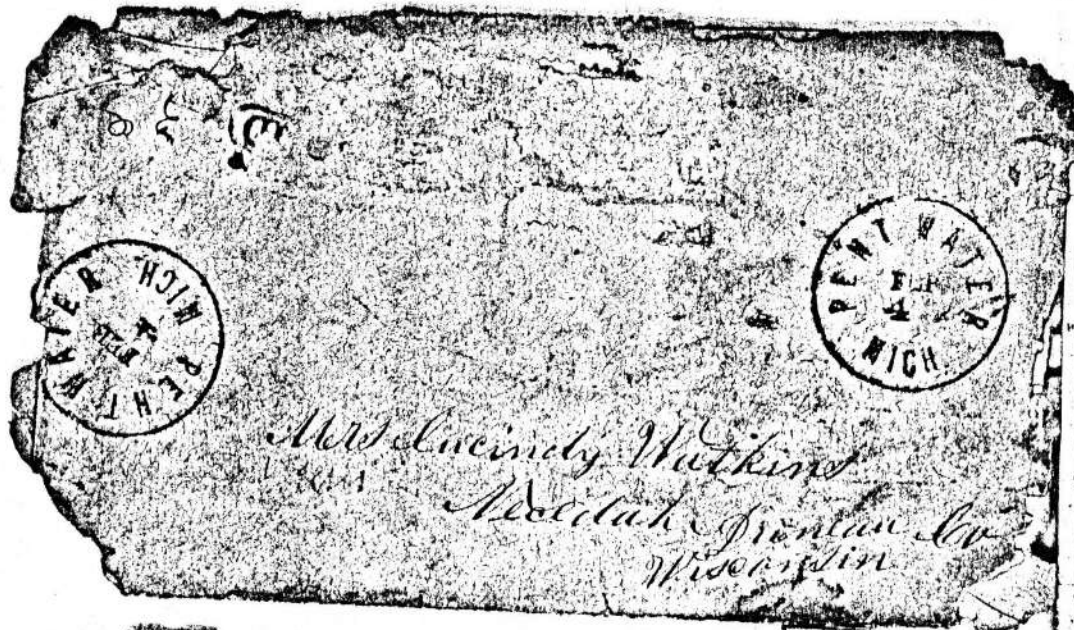 PENT WATER
FEB
4
MICH
PENT WATER
FEB
4
MICH
Mrs Lucindy Watkins
Necedah Juneau Co
Wisconsin